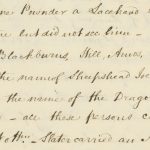 ne Pownder a Sackhand
he but did not see him -
Blackburns, Hill, Amos,
the name of Sheepshead Joe
the name of the Drago
- all these persons c
Slater carried an